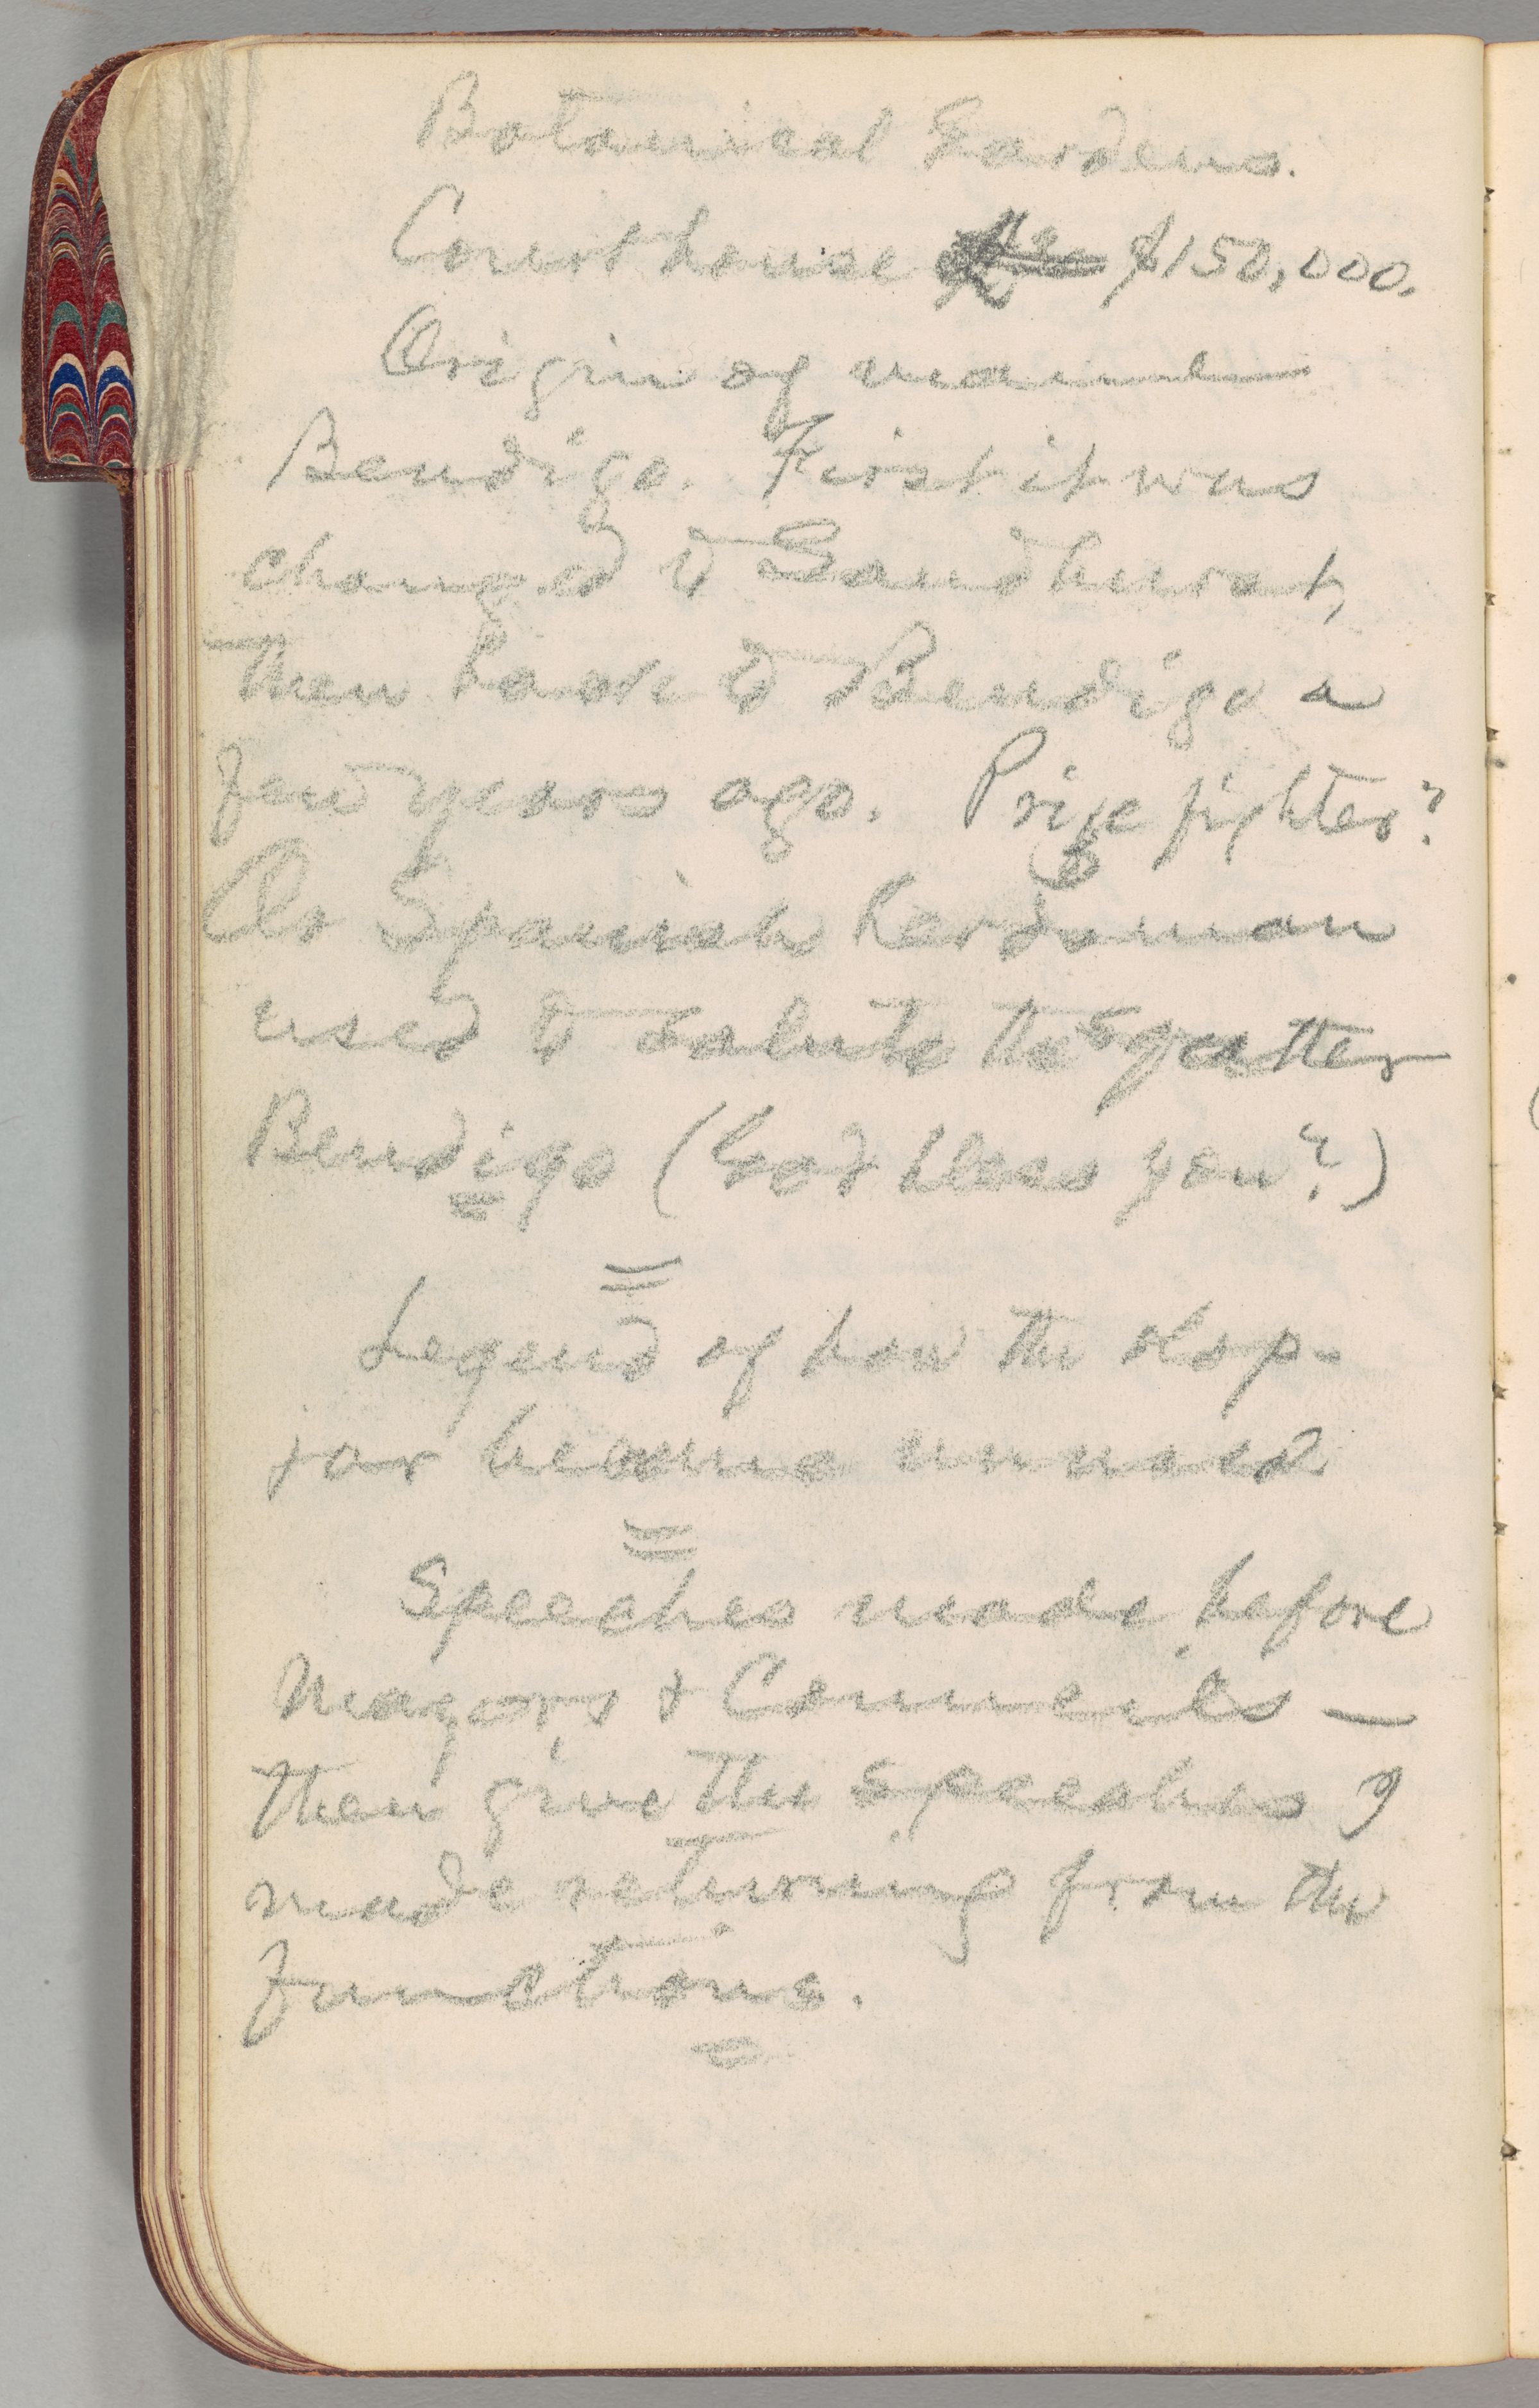 Botanical Gardens.
Court house $150,000.
Origin of name
Bendigo. First it was
changed to Sandhurst,
then back to Bendigo a
few years ago. Prize fighter?
Or Spanish herdsman
used to salute the squatter
Bendigo (God bless you?)
Legend of how the slop-
jar became unused
Speeches made before
Mayors & Councils —
then give the speeches I
made returning from the
functions.